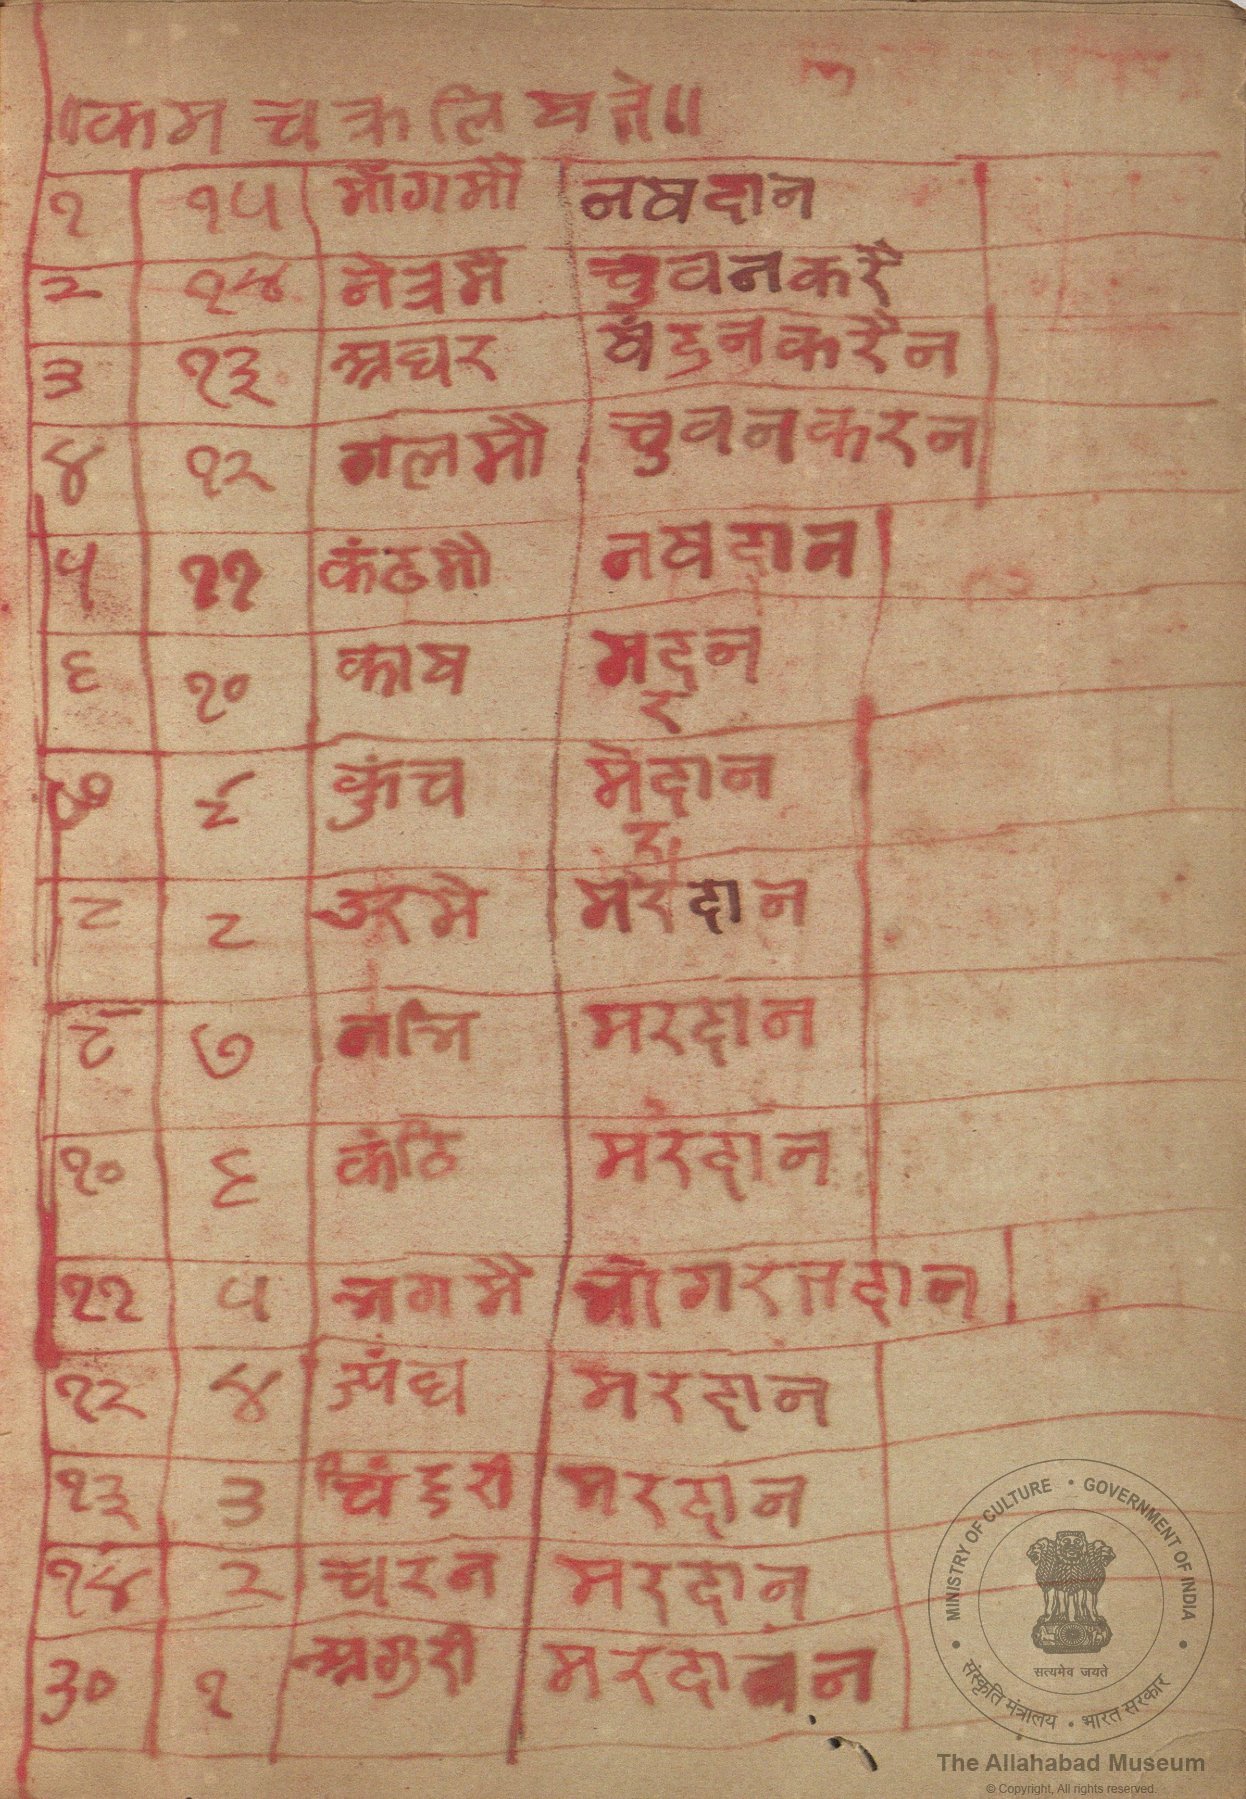 ॥काम चक्र लिषते॥
१ १५ माँगमौ नषदान
२ १४ नेत्रमै चुवनकरै
३ १३ अधर षंडनकरैन
४ १२ गलमौ चुवनकरन
५ ११ कंठमौ नषदान
६ १० काष मर्दन
७ ९ कुंच मैदान
र
८ ८ उरमै मरदान
९ ७ नाभि मरदान
१० ६ कंठि मरदान
११ ५ भगमै भागरतदान
१२ ४ जंघ मरदान
१३ ३ मरदान
१४ २ चरन मरदान
३० १ अगुरी मरदान
MINISTRY OF CULTURE • GOVERNMENT OF INDIA
सत्यमेव जयते
संस्कृति मंत्रालय • भारत सरकार
The Allahabad Museum
© Copyright, All rights reserved.